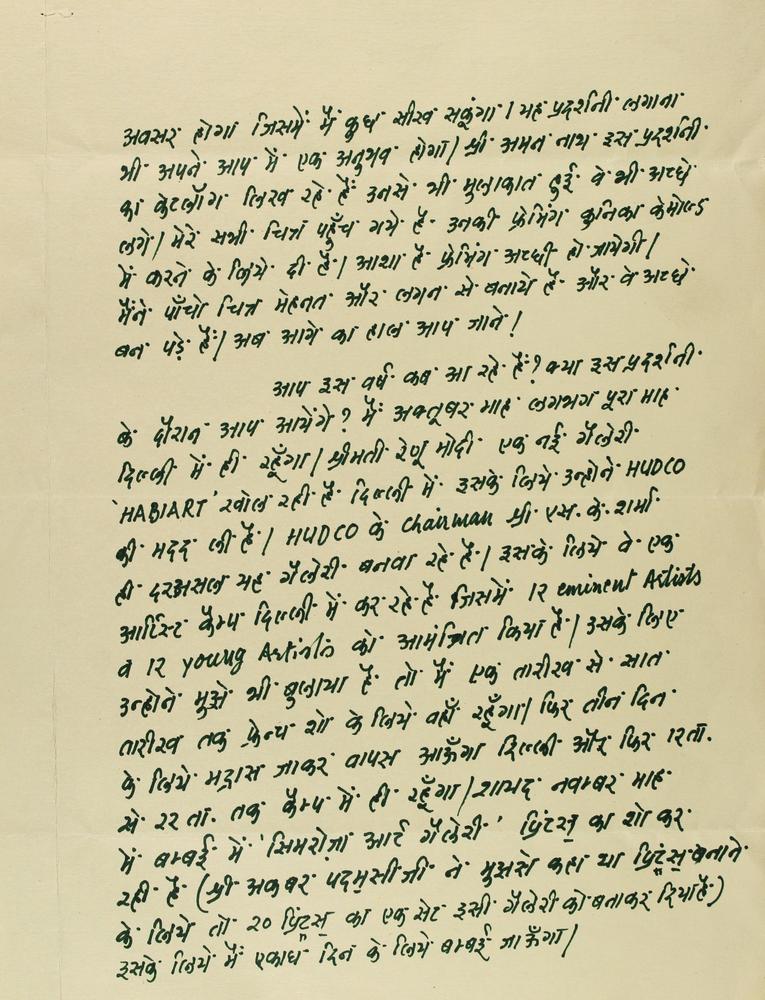 अवसर होगा जिसमें मैं कुछ सीख सकूंगा। यह प्रदर्शनी लगाना
भी अपने आप में एक अनुभव होगा। श्री अमन नाथ इस प्रदर्शनी
का केटलॉग लिख रहे हैं उनसे भी मुलाकात हुई वे भी अच्छे
लगे। मेरे सभी चित्र पहुँच गये है उनकी फ्रेमिंग कुनिका केमोल्ड
में करने के लिये दी है। आशा है फ्रेमिंग अच्छी हो जायेगी।
मैंने पाँचों चित्र मेहनत और लगन से बनाये है और वे अच्छे
बन पड़े हैं। अब आगे का हाल आप जाने!
आप इस वर्ष कब आ रहे हैं? क्या इस प्रदर्शनी
के दौरान आप आयेंगे? मैं अक्तूबर माह लगभग पूरा माह
दिल्ली में ही रहूँगा। श्रीमती रेणू मोदी एक नई गैलेरी
'HABIART' खोल रही है दिल्ली में इसके लिये उन्होने HUDCO
की मदद ली है। HUDCO के chairman श्री एस. के. शर्मा
ही दरअसल यह गैलेरी बनवा रहे है। इसके लिये वे एक
आर्टिस्ट कैम्प दिल्ली में कर रहे है जिसमें 12 eminent Artists
व 12 young Artists को आमंत्रित किया है। उसके लिए
उन्होने मुझे भी बुलाया है तो मैं एक तारीख से सात
तारीख तक फ्रेन्च शो के लिये वहाँ रहूँगा। फिर तीन दिन
के लिये मद्रास जाकर वापस आऊँगा दिल्ली और फिर १२ ता.
से २२ ता. तक कैम्प में ही रहूँगा। शायद नवम्बर माह
में बम्बई में 'सिमरोज़ा आर्ट गैलेरी' प्रिंट्स का शो कर
रही है (श्री अकबर पदमसी जी ने मुझसे कहा था प्रिंट्स बनाने
के लिये तो २० प्रिंट्स का एक सेट इसी गैलेरी को बताकर दिया है)
इसके लिये मैं एकाध दिन के लिये बम्बई जाऊँगा।